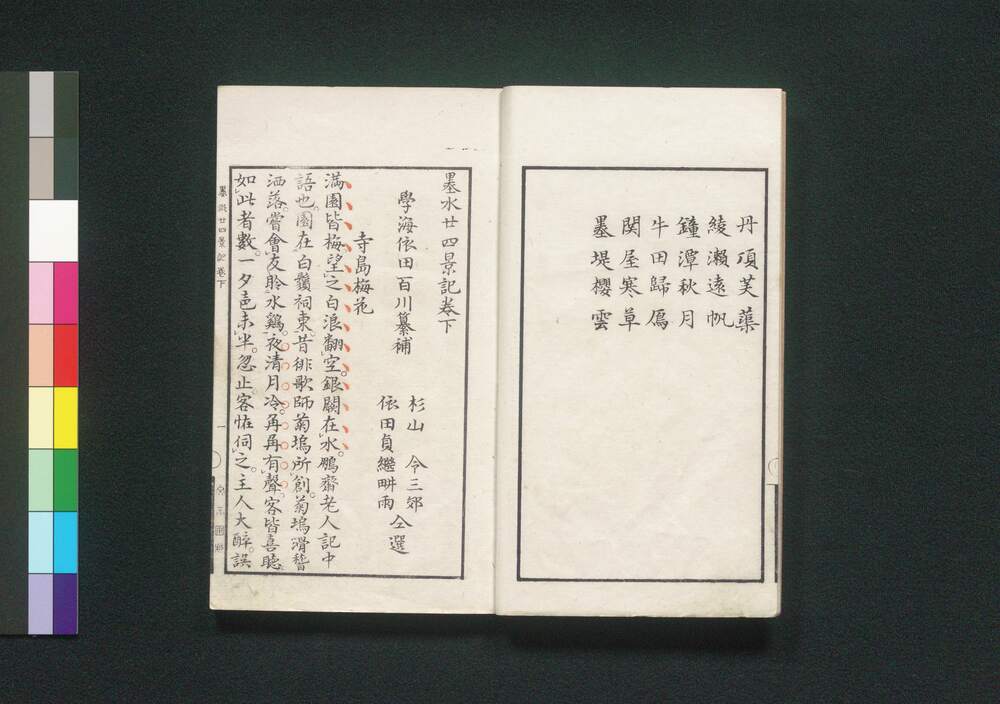 丹頂芙蕖
綾瀬遠帆
鐘潭秋月
牛田歸鴈
関屋寒草
墨堤櫻雲
墨水廿四景記卷下
學海依田百川纂補
杉山 令三郊
依田貞繼畊雨 仝選
寺島梅花
満園皆梅望之白浪翻空。銀闕在水。鵬齋老人記中
語也。園在白鬚祠東。昔俳歌師菊塢所創。菊塢滑稽
洒落。嘗會友聆水鷄。夜清月冷。再再有聲。客皆喜聴。
如此者數。一夕邑未半。忽止。客恠伺之。主人大醉。誤
墨水廿四景記卷下
一